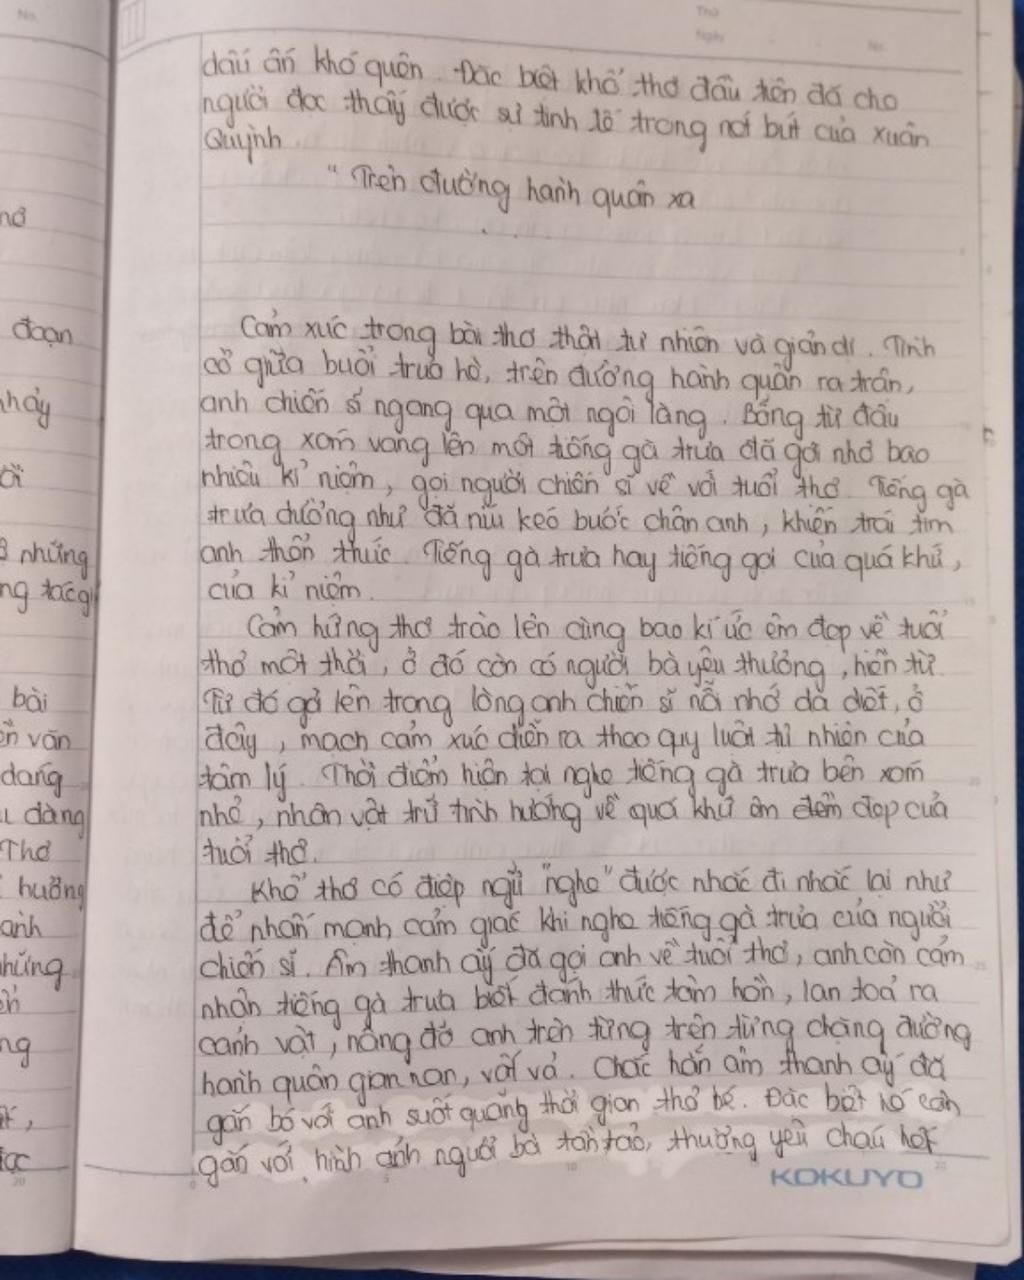 No.
Thứ
Ngày
No.
dấu ấn khó quên. Đặc biệt khổ thơ đầu tiên đã cho
người đọc thấy được sự tinh tế trong nơi bút của Xuân
Quỳnh
" Trên đường hành quân xa
. . . .
Cảm xúc trong bài thơ thật tự nhiên và giản dị. Tình
cờ giữa buổi trưa hè, trên đường hành quân ra trận,
anh chiến sĩ ngang qua một ngôi làng. Bỗng từ đâu
trong xóm vang lên một tiếng gà trưa đã gợi nhớ bao
nhiêu kỉ niệm, gọi người chiến sĩ về với tuổi thơ. Tiếng gà
trưa dường như đã níu kéo bước chân anh, khiến trái tim
anh thổn thức. Tiếng gà trưa hay tiếng gọi của quá khứ,
của kỉ niệm.
Cảm hứng thơ trào lên cùng bao kí ức êm đẹp về tuổi
thơ một thời, ở đó còn có người bà yêu thương, hiền từ.
Từ đó gợi lên trong lòng anh chiến sĩ nỗi nhớ da diết, ở
đây, mạch cảm xúc diễn ra theo quy luật tự nhiên của
tâm lý. Thời điểm hiện tại nghe tiếng gà trưa bên xóm
nhỏ, nhân vật trữ tình hướng về quá khứ êm đềm đẹp của
tuổi thơ.
Khổ thơ có điệp ngữ "nghe" được nhắc đi nhắc lại như
để nhấn mạnh cảm giác khi nghe tiếng gà trưa của người
chiến sĩ. Âm thanh ấy đã gọi anh về tuổi thơ, anh còn cảm
nhận tiếng gà trưa biết đánh thức tâm hồn, lan toả ra
cảnh vật, nâng đỡ anh trên từng trên từng chặng đường
hành quân gian nan, vất vả. Chắc hẳn âm thanh ấy đã
gắn bó với anh suốt quãng thời gian thơ bé. Đặc biệt nó còn
gắn với hình ảnh người bà tần tảo, thương yêu cháu hết
KOKUYO
đoạn
nhảy
những
ng tácgi
bài
văn
dạng
dàng
Thơ
hưởng
ảnh
những
ng